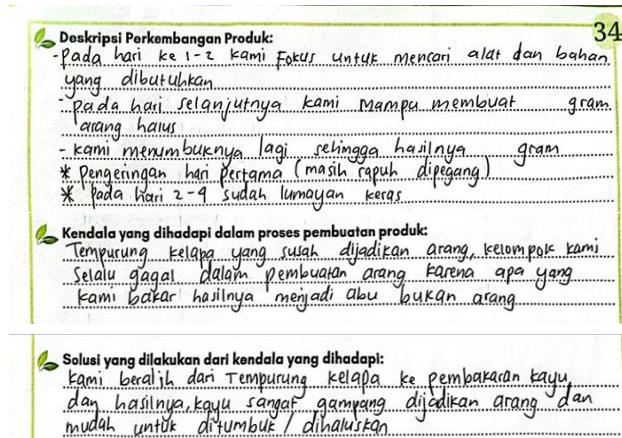 34
Deskripsi Perkembangan Produk:
- pada hari ke 1-2 kami Fokus untuk mencari alat dan bahan
yang dibutuhkan
- pada hari selanjutnya kami mampu membuat gram
arang halus
- kami menumbuknya lagi sehingga hasilnya gram
* Pengeringan hari pertama (masih rapuh dipegang)
* Pada hari 2-4 sudah lumayan keras
Kendala yang dihadapi dalam proses pembuatan produk:
Tempurung kelapa yang susah dijadikan arang, kelompok kami
Selalu gagal dalam pembuatan arang karena apa yang
kami bakar hasilnya menjadi abu bukan arang
Solusi yang dilakukan dari kendala yang dihadapi:
Kami beralih dari Tempurung kelapa ke pembakaran kayu
dan hasilnya, kayu sangat gampang dijadikan arang dan
mudah untuk ditumbuk / dihaluskan